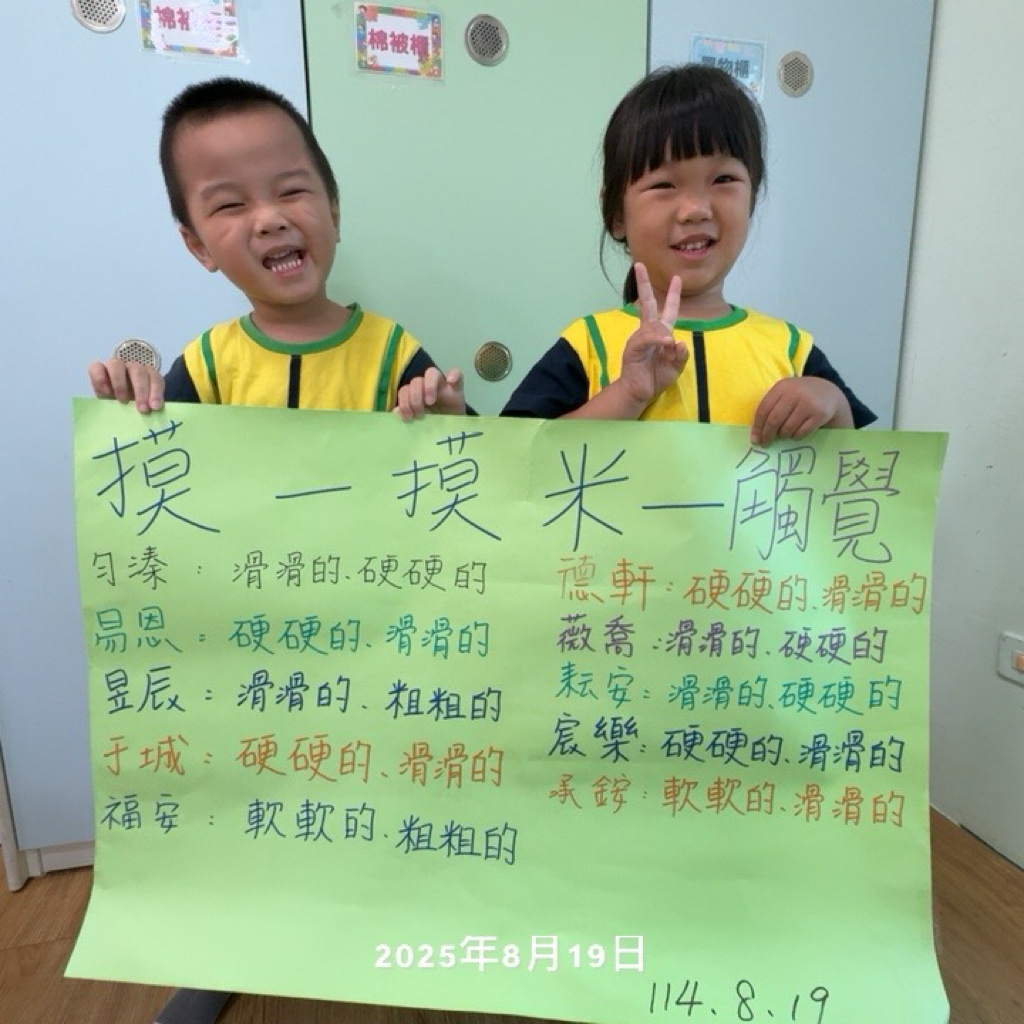 棉被櫃
摸一摸米—觸覺
匀溱：滑滑的、硬硬的
易恩：硬硬的、滑滑的
昱辰：滑滑的、粗粗的
于城：硬硬的、滑滑的
福安：軟軟的、粗粗的
德軒：硬硬的、滑滑的
薇喬：滑滑的、硬硬的
耘安：滑滑的、硬硬的
宸樂：硬硬的、滑滑的
承銨：軟軟的、滑滑的
2025年8月19日
114.8.19